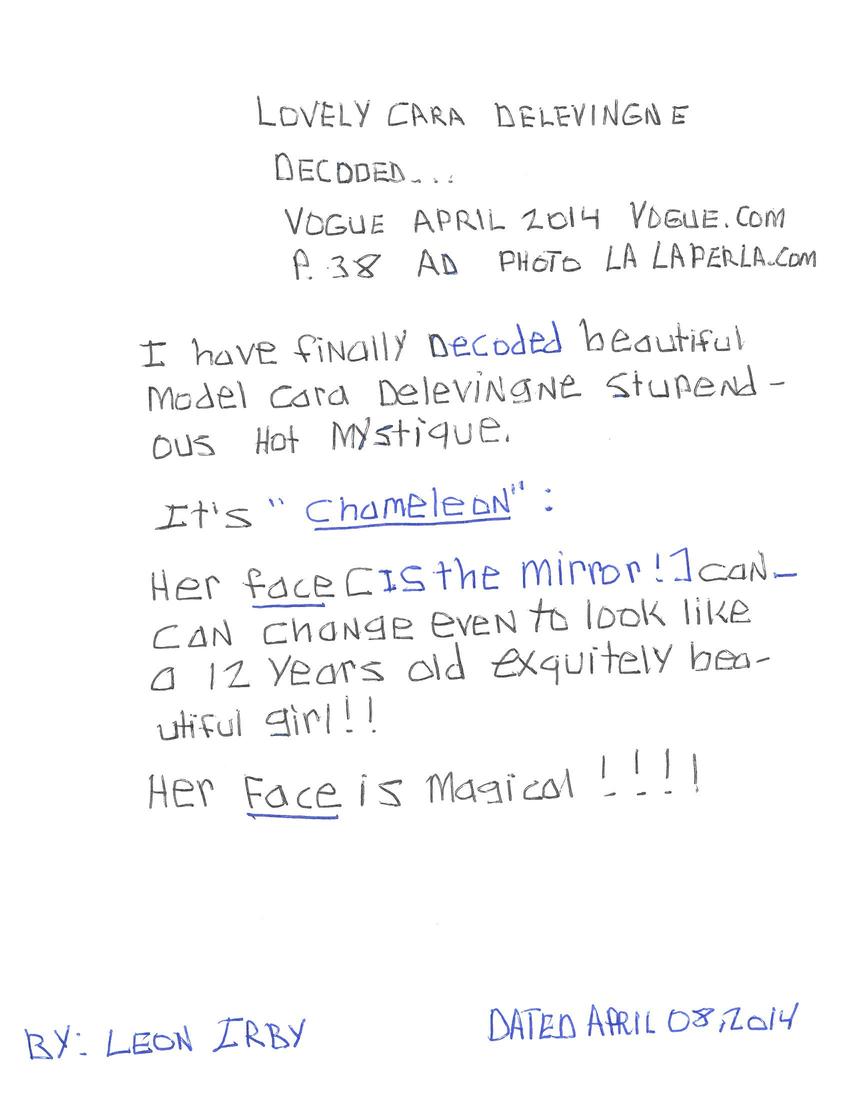 LOVELY CARA DELEVINGNE
DECODED...
VOGUE APRIL 2014 VOGUE.COM
P. 38 AD PHOTO LA LAPERLA.COM
I have finally Decoded beautiful
Model Cara Delevingne Stupend-
ous Hot Mystique.
It's "Chameleon":
Her face [IS the mirror!] can-
can change even to look like
a 12 years old exquitely bea-
utiful girl!!
Her Face is Magical !!!!
BY: LEON IRBY
DATED APRIL 08,2014